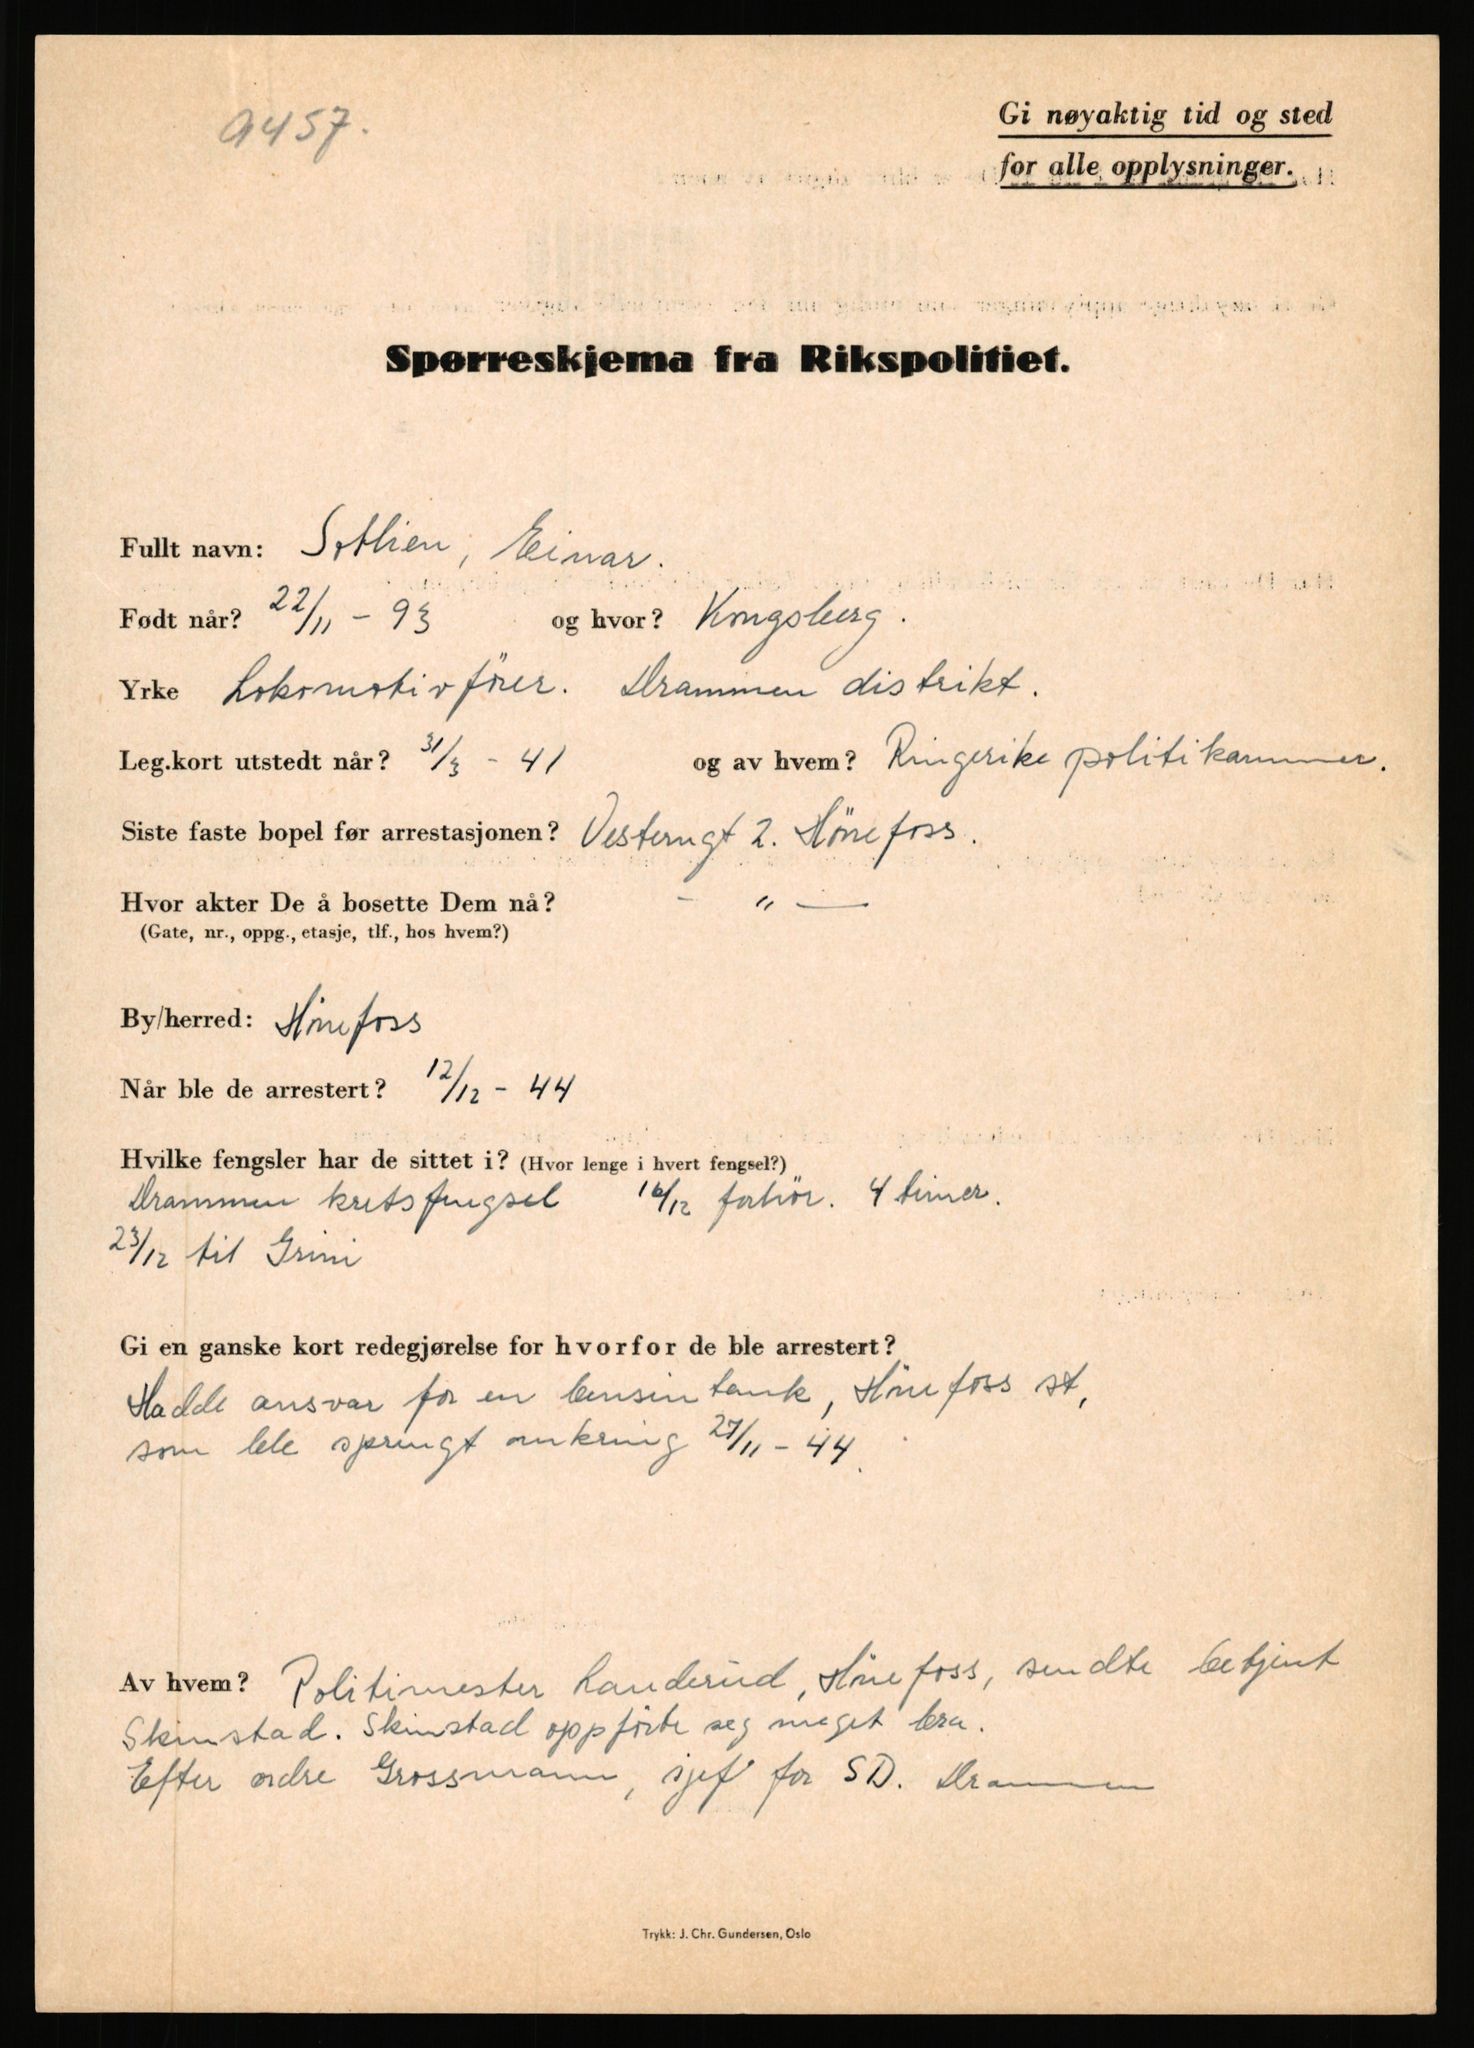 9457.
Gi nøyaktig tid og sted
for alle opplysninger.
Spørreskjema fra Rikspolitiet.
Fullt navn: Sotlien, Einar.
Født når? 22/11 - 93 og hvor? Kongsberg.
Yrke Lokomotivfører. Drammen distrikt.
Leg.kort utstedt når? 31/3 - 41 og av hvem? Ringerike politikammer.
Siste faste bopel før arrestasjonen? Vesterngt 2. Hönefoss.
Hvor akter De å bosette Dem nå? - " -
(Gate, nr., oppg., etasje, tlf., hos hvem?)
By/herred: Hönefoss
Når ble de arrestert? 12/12 - 44
Hvilke fengsler har de sittet i? (Hvor lenge i hvert fengsel?)
Drammen kretsfengsel 16/12 forhör. 4 timer.
23/12 til Grini
Gi en ganske kort redegjørelse for hvorfor de ble arrestert?
Hadde ansvar for en bensintank, Hönefoss st,
som ble sprengt omkring 27/11 - 44.
Av hvem? Politimester Landerud, Hönefoss, sendte betjent
Skinstad. Skinstad oppförte seg meget bra.
Efter ordre Grossmann, sjef for SD. Drammen
Trykk: J. Chr. Gundersen, Oslo